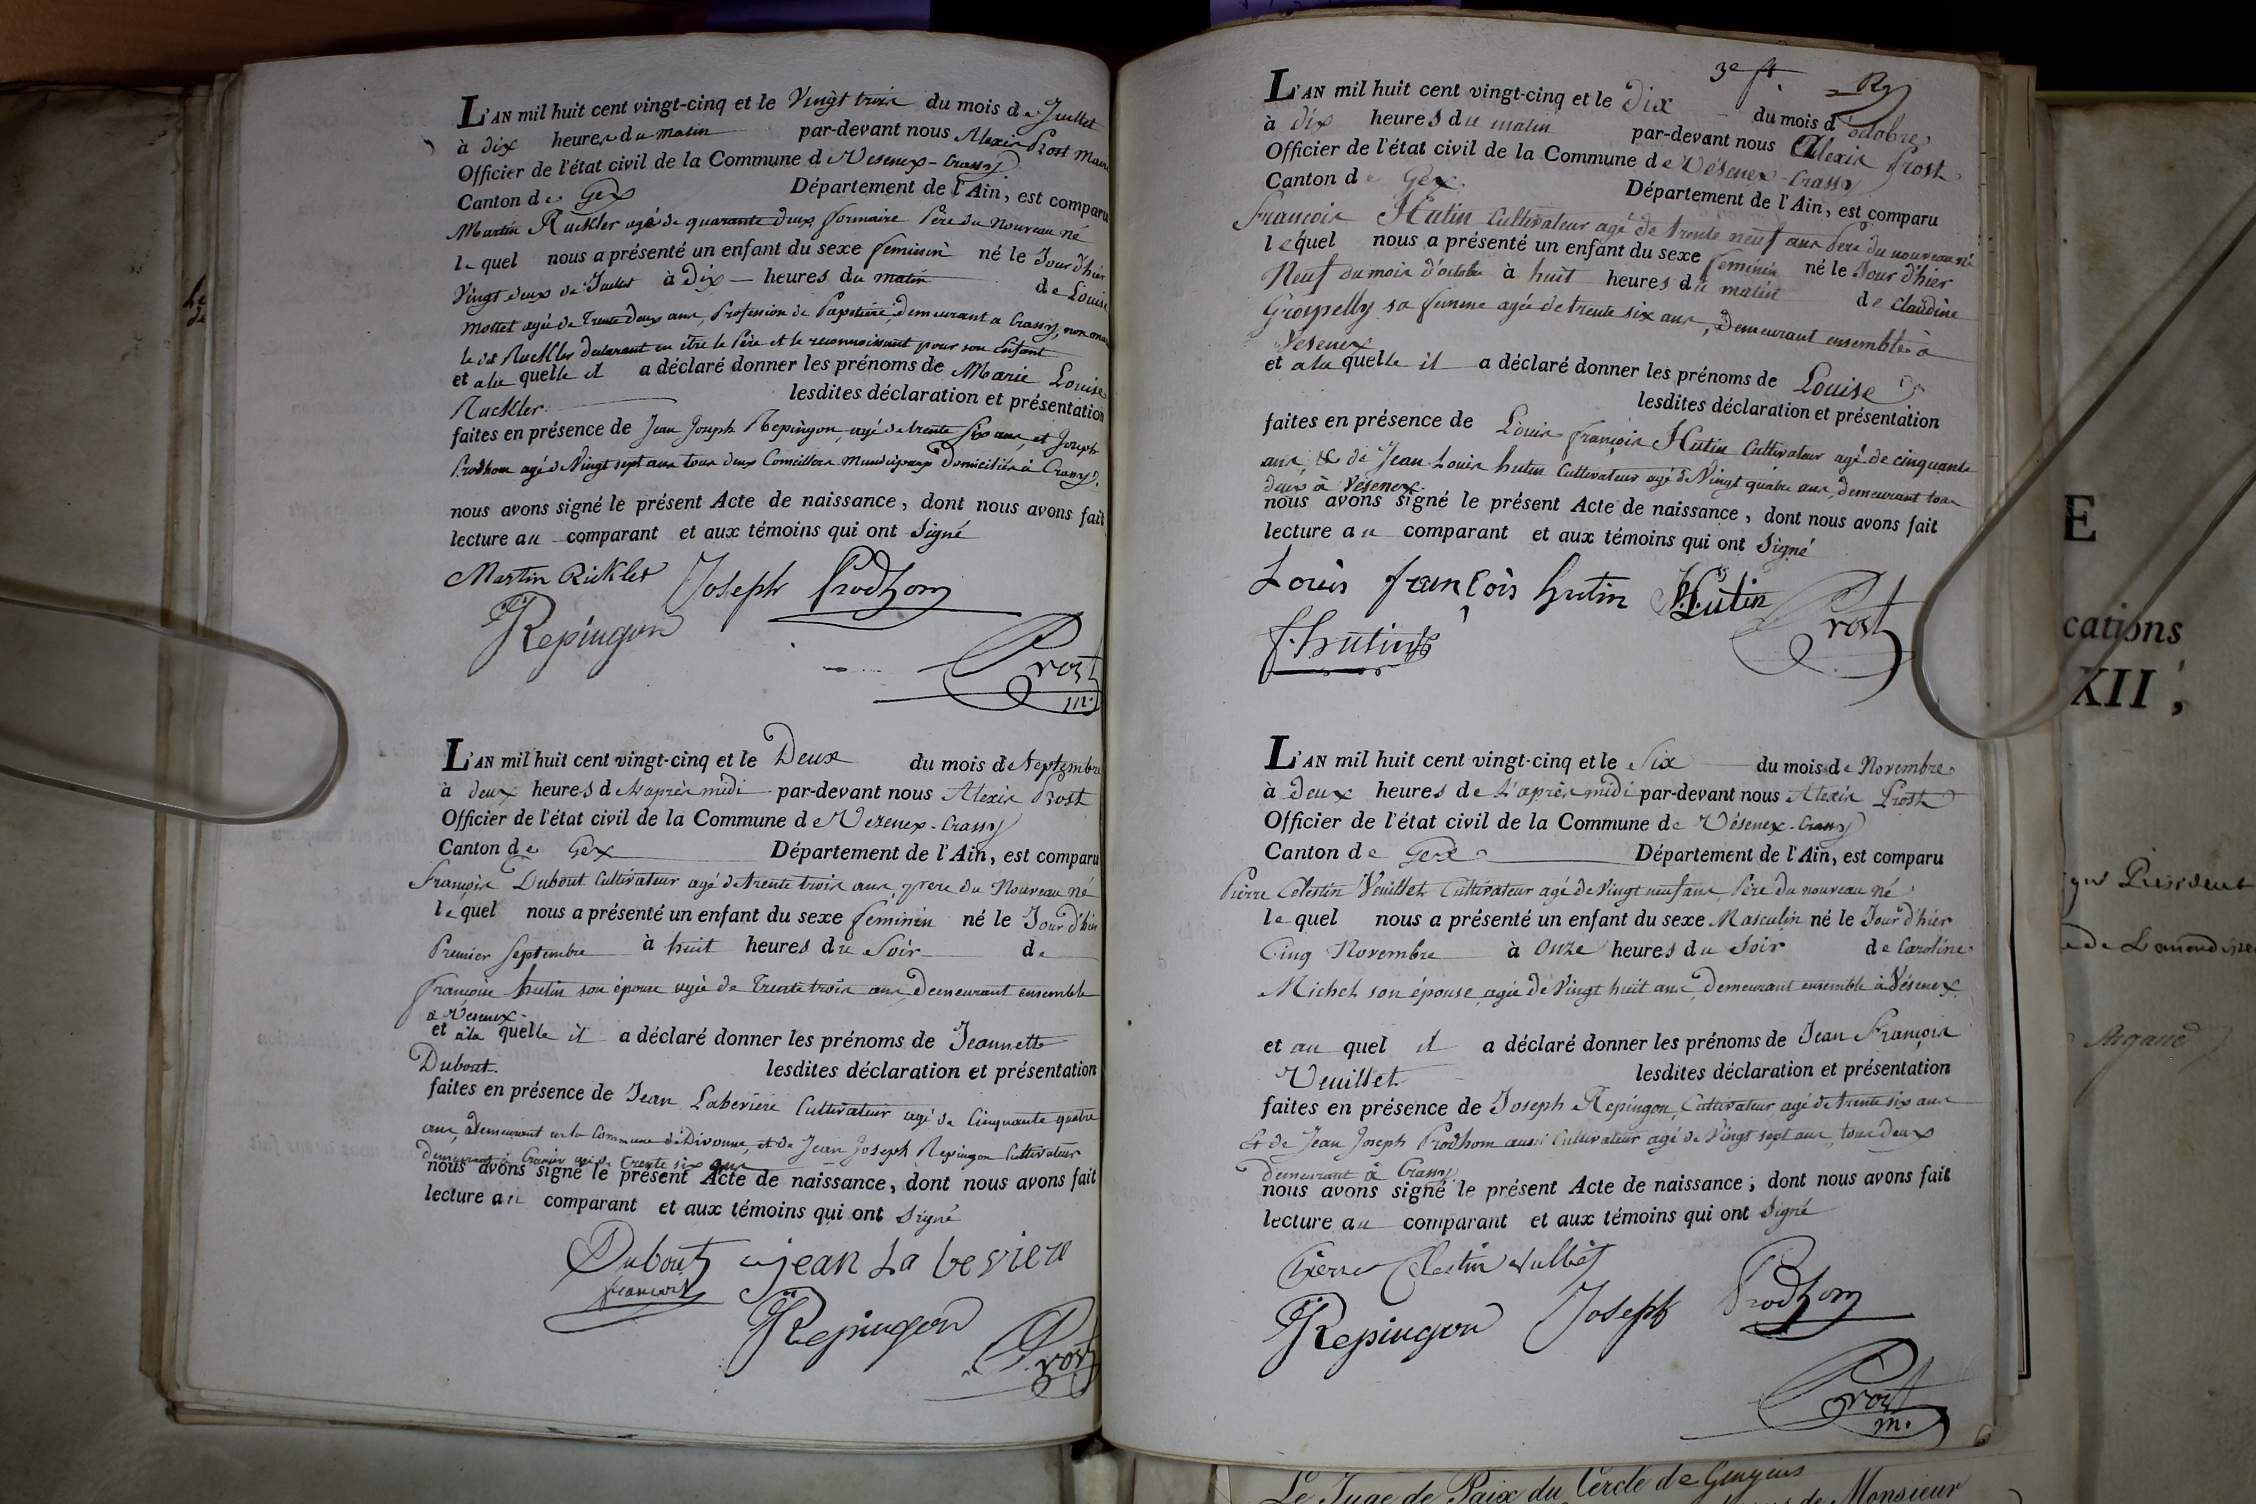 L'AN mil huit cent vingt-cinq et le Vingt trois du mois de Juillet
à dix heures du matin par-devant nous Alexis Prost Maire
Officier de l'état civil de la Commune de Vesenex-Crassy
Canton de Gex Département de l'Ain, est comparu
Martin Ruckler agé de quarante deux formaire Père du Nouveau né
lequel nous a présenté un enfant du sexe feminin né le Jour d'hier
Vingt deux de Juillet à Dix heures du matin de Louise
Mottet agée de Trente deux ans, Profession de Papetière, demeurant a Crassy, non
le dit Ruckler declarant en être le Père et le reconnoissant pour son Enfant
et a la quelle il a déclaré donner les prénoms de Marie Louise
Ruckler lesdites déclaration et présentation
faites en présence de Jean Joseph Repingon, agé de trente six ans, et Joseph
Prodhom agé de Vingt sept ans tous deux Conseillers Municipaux Domiciliés à Crassy.
nous avons signé le présent Acte de naissance, dont nous avons fait
lecture au comparant et aux témoins qui ont Signé
Martin Rickler Joseph Prodhom
Repingon
Prost
m.
L'AN mil huit cent vingt-cinq et le Deux du mois de Septembre
à deux heures de l'après midi par-devant nous Alexis Prost
Officier de l'état civil de la Commune de Vezenex-Crassy
Canton de Gex Département de l'Ain, est comparu
François Dubout Cultivateur agé de trente trois ans, père du Nouveau né
lequel nous a présenté un enfant du sexe feminin né le Jour d'hier
Premier Septembre à huit heures du Soir de
françoise hutin son épouse agée de Trente trois ans, demeurant ensemble
à Vesenex.
et à la quelle il a déclaré donner les prénoms de Jeannette
Dubout. lesdites déclaration et présentation
faites en présence de Jean Laberiere Cultivateur agé de Cinquante quatre
ans, demeurant en la Commune de Divonne, et de Jean Joseph Repingon Cultivateur
demeurant à Crassier agé de trente six ans
nous avons signé le présent Acte de naissance, dont nous avons fait
lecture au comparant et aux témoins qui ont Signé
Dubout jean La beviere
francois
Repingon
Prost
3e ft
L'AN mil huit cent vingt-cinq et le Dix du mois d'octobre
à dix heures du matin par-devant nous Alexis Prost
Officier de l'état civil de la Commune de Vésenex-Crassy
Canton de Gex. Département de l'Ain, est comparu
François Hutin Cultivateur agé de trente neuf ans Père du nouveau né
lequel nous a présenté un enfant du sexe feminin né le Jour d'hier
Neuf du mois d'octobre à huit heures du matin de Claudine
Grospelly sa femme agée de trente six ans, Demeurant ensemble à
Vesenex
et a la quelle il a déclaré donner les prénoms de Louise
lesdites déclaration et présentation
faites en présence de Louis françois Hutin Cultivateur agé de cinquante
ans, & de Jean Louis hutin Cultivateur agé de Vingt quatre ans, demeurant tous
deux à Vésenex.
nous avons signé le présent Acte de naissance, dont nous avons fait
lecture au comparant et aux témoins qui ont Signé
Louis françois hutin Hutin
f. hutin Prost
L'AN mil huit cent vingt-cinq et le Six du mois de Novembre
à Deux heures de l'après midi par-devant nous Alexis Prost
Officier de l'état civil de la Commune de Vésenex-Crassy
Canton de Gex Département de l'Ain, est comparu
Pierre Celestin Veuillet Cultivateur agé de Vingt neuf ans, Père du nouveau né
lequel nous a présenté un enfant du sexe Masculin né le Jour d'hier
Cinq Novembre à Onze heures du Soir de Caroline
Michel son épouse agée de Vingt huit ans, Demeurant ensemble à Vésenex
et au quel il a déclaré donner les prénoms de Jean François
Veuillet lesdites déclaration et présentation
faites en présence de Joseph Repingon, Cultivateur agé de trente six ans
Et de Jean Joseph Prodhom aussi Cultivateur agé de Vingt sept ans, tous deux
demeurant à Crassy
nous avons signé le présent Acte de naissance; dont nous avons fait
lecture au comparant et aux témoins qui ont Signé
Pierre Celestin vulliet
Repingon Joseph Prodhom
Prost
m.
E
cations
XII,
Président
Argand
Le Juge de Paix du Cercle de Gingins
de Monsieur